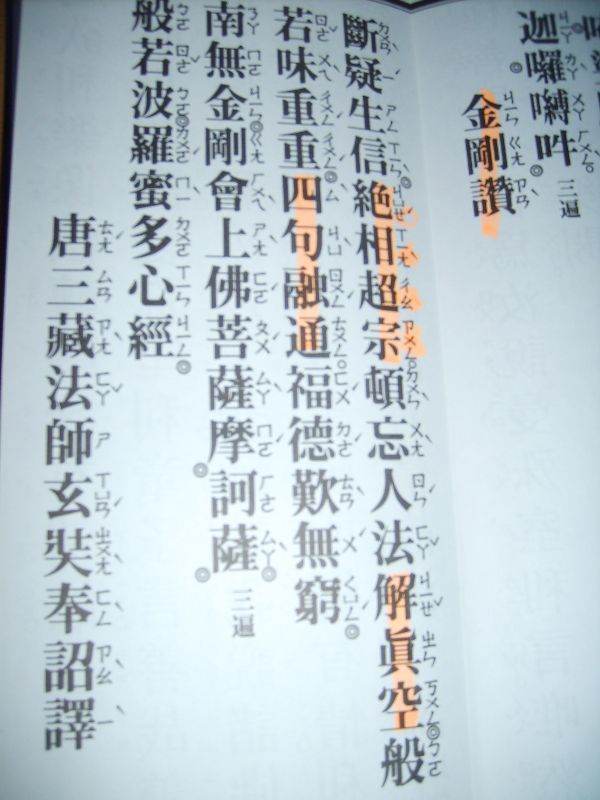 迦囉嚩吽 三遍
金剛讚
斷疑生信絕相超宗頓忘人法解眞空般
若味重重四句融通福德歎無窮
南無金剛會上佛菩薩摩訶薩 三遍
般若波羅蜜多心經
唐三藏法師玄奘奉詔譯